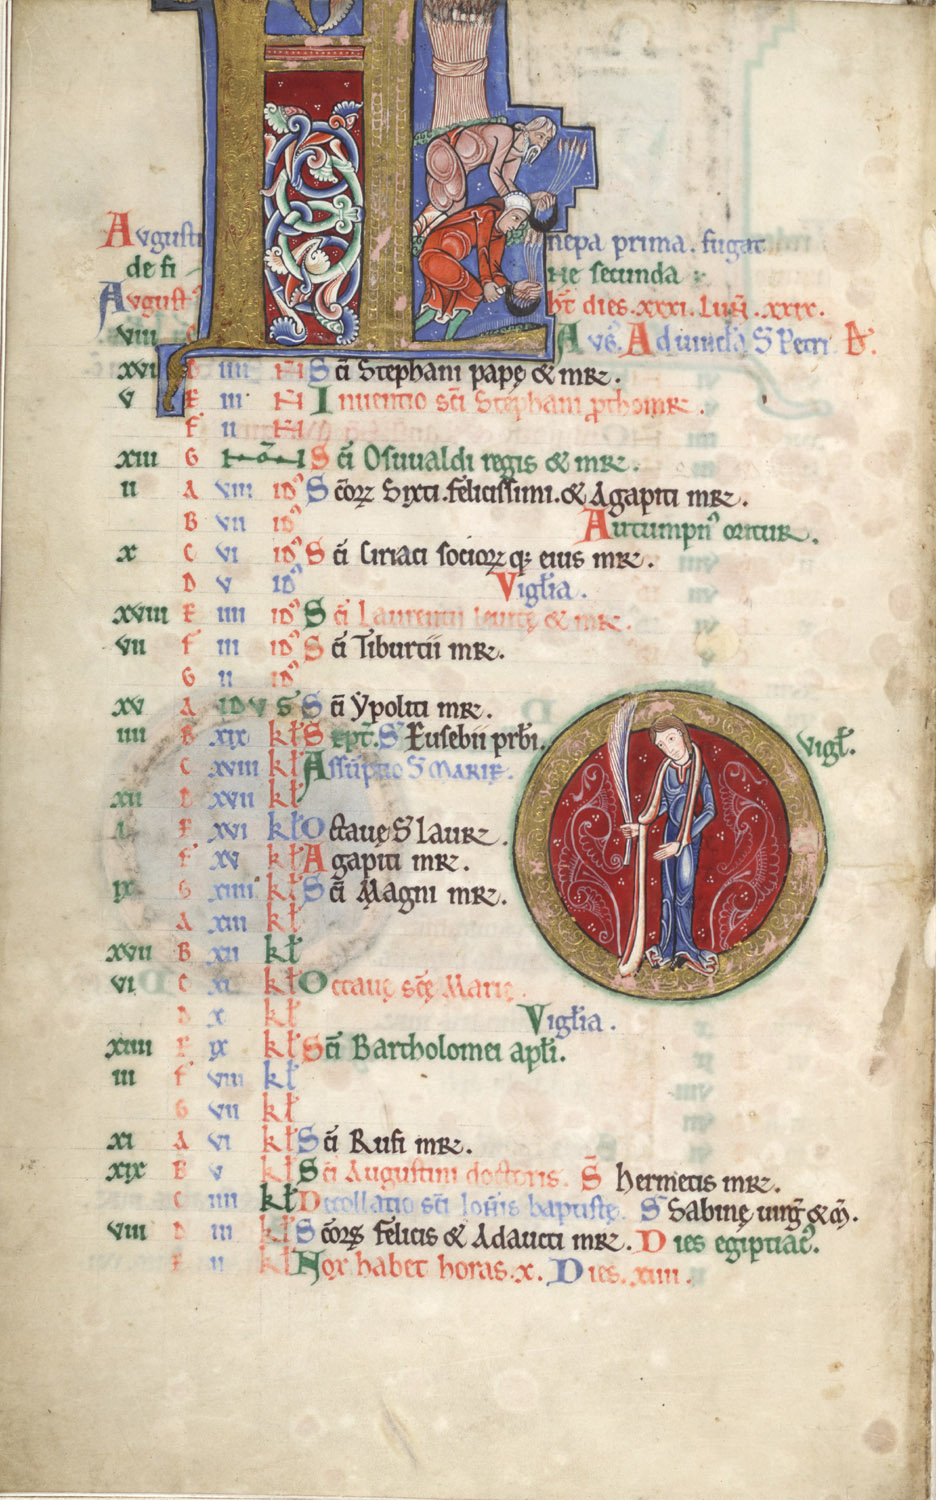 Augusti nepa prima . fugat
de fi ne secunda
August' h't dies . xxxi . Lun . xxix .
viii Aug'. Ad uincla S Petri
xvi D iiii N Sci Stephani pape & mr .
v E iii N Inuentio sci Stephani prothomr .
F ii N
xiii G Non Sci Osuualdi regis & mr .
ii A viii id' Scorz Sixti . felicissimi . & Agapiti mr .
B vii id' Autumpn' oritur .
x C vi id' Sci Ciriaci sociorz q; eius mr .
D v id' Vigilia .
xviii E iiii id' Sci Laurentii leuite & mr .
vii F iii id' Sci Tiburtii mr .
G ii id'
xv A idus Sci Ypoliti mr .
iiii B xix kl Sept . S Eusebii prbi . Vigl .
C xviii kl Assuptio S Marie .
xii D xvii kl
i E xvi kl Octaue S Laur .
F xv kl Agapiti mr .
ix G xiiii kl Sci Magni mr .
A xiii kl
xvii B xii kl
vi C xi kl Octaue sce Marie .
D x kl Vigilia .
xiiii E ix kl Sci Bartholomei apli .
iii F viii kl
G vii kl
xi A vi kl Sci Rufi mr .
xix B v kl Sci Augustini doctoris . S Hermetis mr .
C iiii kl Decollatio sci Iohis baptiste . S Sabine uirg & m .
viii D iii kl Scorz felicis & Adaucti mr . Dies egiptiac' .
E ii kl Nox habet horas . x . Dies . xiiii .